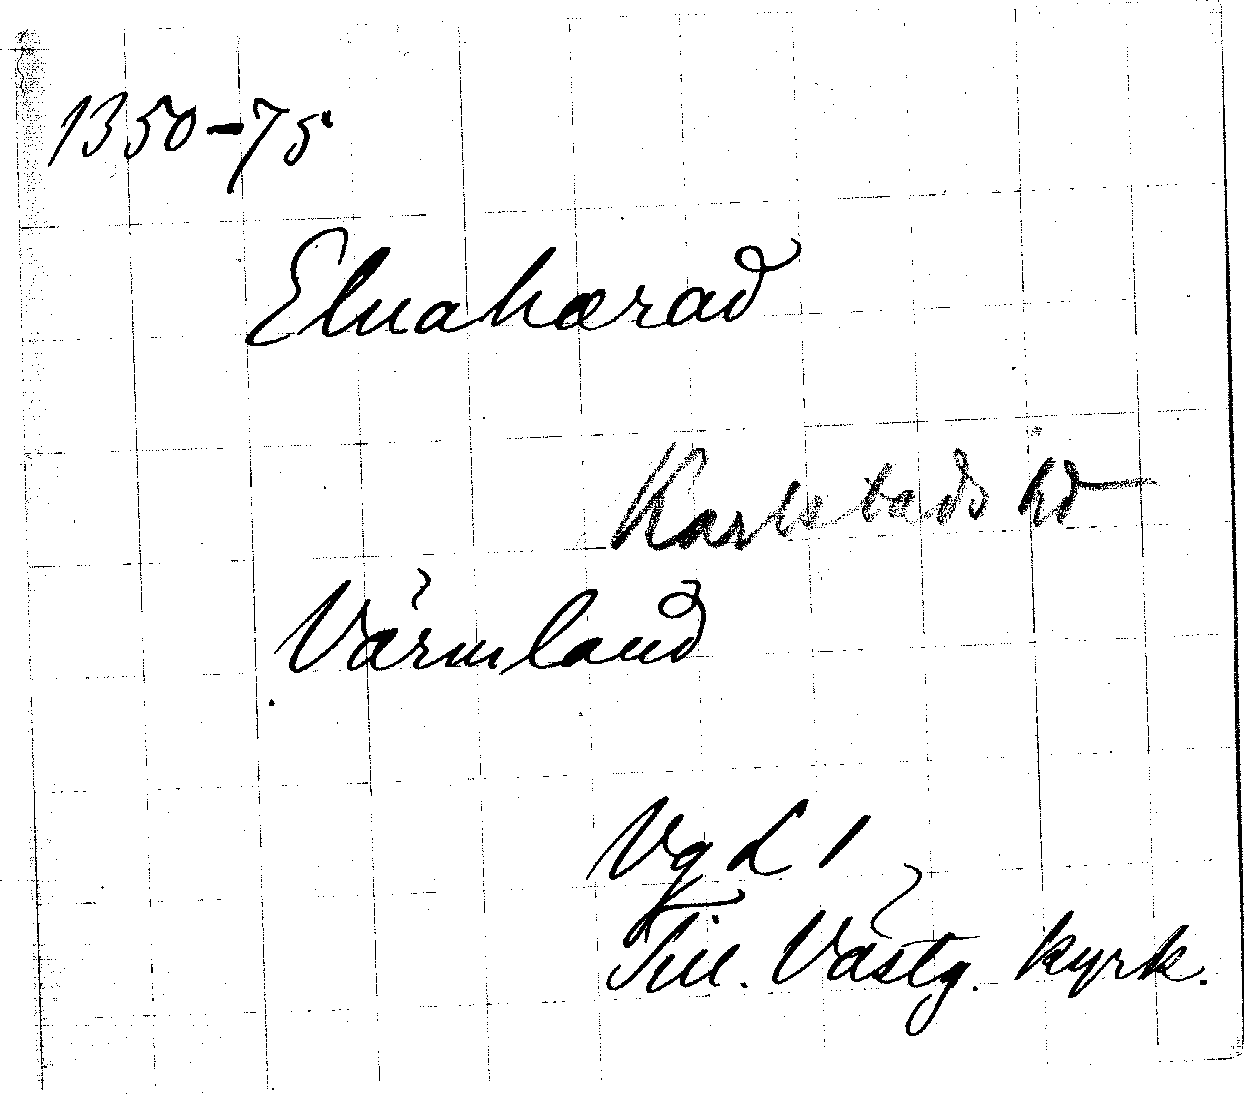 1350-75
Eluahærad
Karlstads hd
Värmland
Vg L 1
Till. Västg. kyrk.